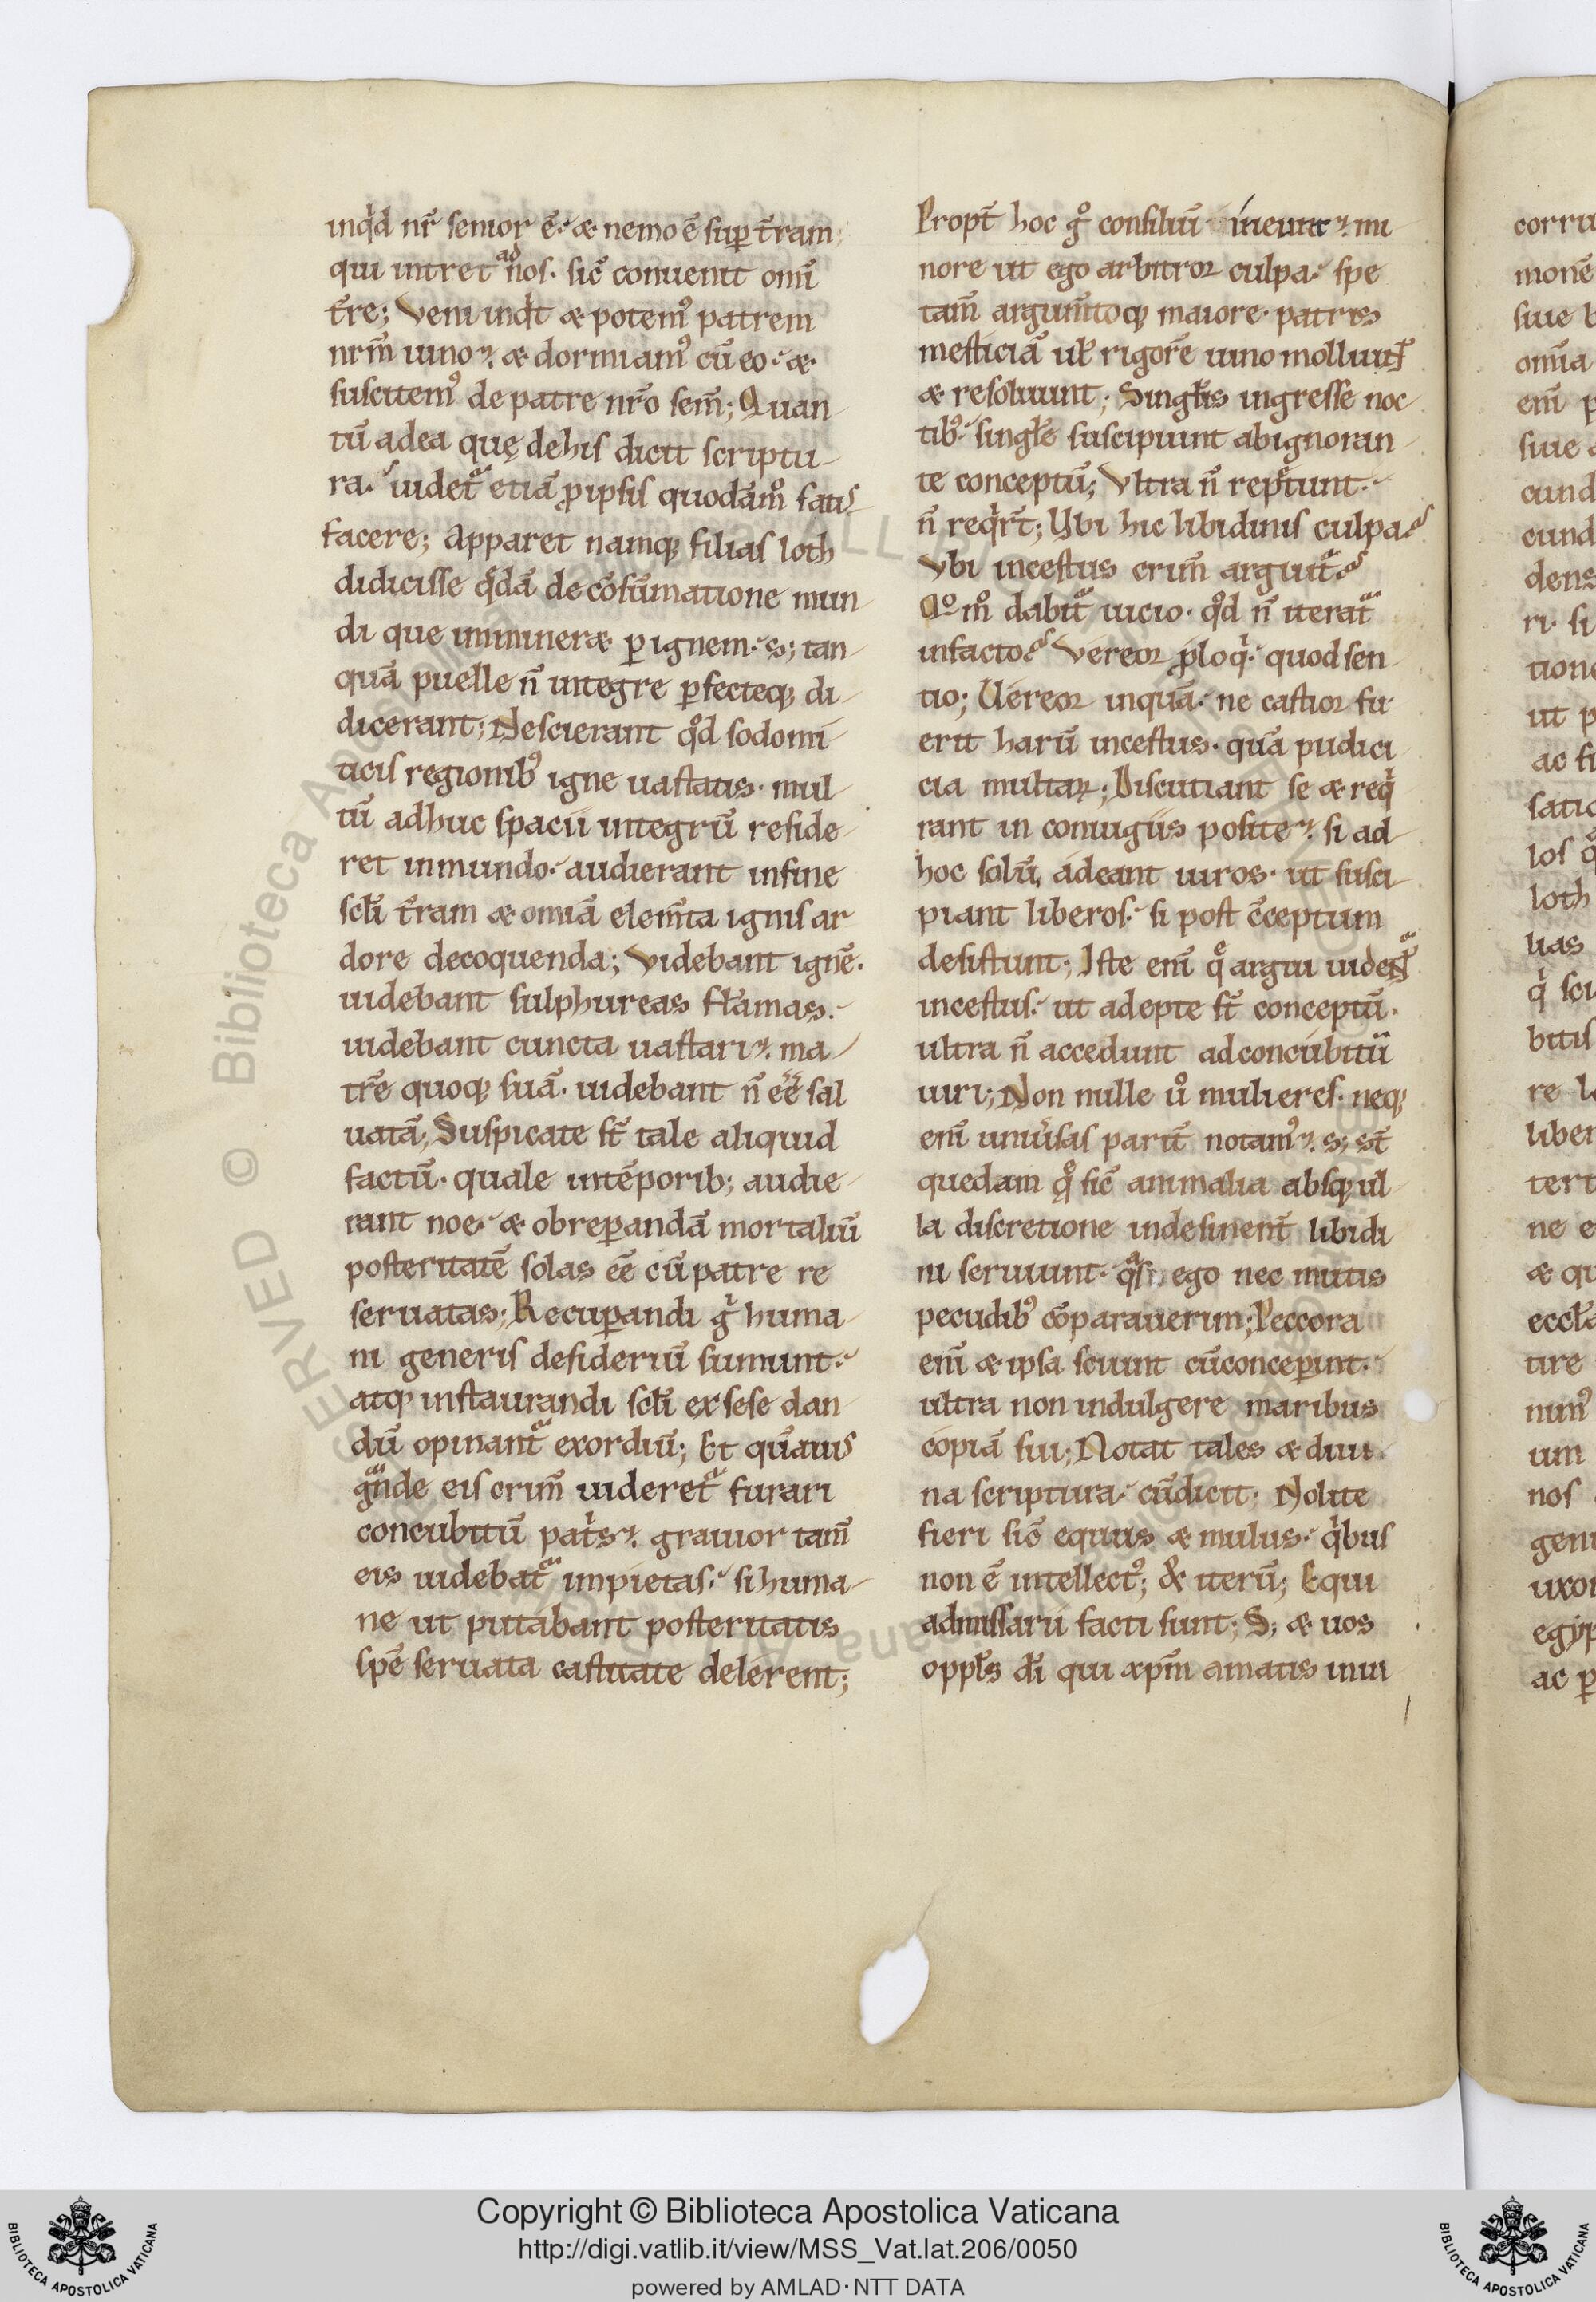 inqͥd nr̄ senior ē. ⁊ nemo ē suꝑ t̄ram
qui intret ad nos. sic̄ conuenit omī
t̄re; Veni indͥt ⁊ potem᷒ patrem
nrm̄ uino. ⁊ dormiam᷒ cū eo. ⁊
suscitem᷒ de patre nr̄o sem̄; Quan
tū adea quę dehis dicit scriptu
ra. uidet᷑ etiā ꝓipsis quodāmͦ satis
facere; Apparet namqꝫ filias loth
didicisse qͣdā de cōsūmatione mun
di que immineræ ꝑ ignem. sꝫ tan
quā puelle n̄ integre ꝑfecteqꝫ di
dicerant; Nescierant qͦd sodomi
ticis regionib᷒ igne uastatis. mul
tū adhuc spacii integrū reside
ret inmundo. audierant infine
scl̄i t̄ram ⁊ omiā elem̄ta ignis ar
dore decoquenda; Videbant ignē.
uidebant sulphureas flāmas.
uidebant cuncta uastari. ma
tr̄e quoqꝫ suā. uidebant n̄ eē sal
uatā; Suspicate st̄ tale aliquid
factū. quale intēporibꝫ audie
rant noe. ⁊ obreꝑandā mortaliū
posteritatē solas eē cū patre re
seruatas; Recuꝑandi gͥ huma
ni generis desideriū sumunt.
atqꝫ instaurandi scl̄i ex sese dan
dū opinant᷑ exordiū; Et qūauis
gͣnde eis crim̄ uideret᷑ furari
concubitū patͥs. grauior tam̄
eis uidebat᷑ impietas. si huma
ne ut putabant posteritatis
spē seruata castitate delerent;
Propt̄ hoc gͦ consiliū ineunt. mi
nore ut ego arbitror culpa. spe
tam̄ argum̄toqꝫ maiore. patris
mesticiā ul̄ rigorē uino molliunt
⁊ resoluunt; Singl̄is ingresse noc
tib᷒. singl̄e suscipiunt abignoran
te conceptū; Vltra n̄ repͤtunt.
n̄ reqͥrt̄; Vbi hic libidinis culpa.
Vbi incestus crim̄ arguit᷑
Qͦmͦ dabit᷑ uicio. qͦd n̄ iterat᷑
infacto Vereor ꝓloqͥ. quod sen
tio; Uereor inquā. ne castior fu
erit harū incestus. quā pudici
cia multaꝝ; Discutiant se ⁊ reqͥ
rant in coniugiis posite. si ad
hoc solū, adeant uiros. ut susci
piant liberos. si post c̄ceptum
desistunt; Iste enī qͤ argui uident᷑
incestus. ut adepte st̄ conceptū.
ultra n̄ accedunt adconcubitū
uiri; Non nulle uͦ mulieres. neqꝫ
enī uniūsas parit̄ notam᷒. sꝫ st̄
quedam qͤ sic̄ animalia absqꝫ ul
la discretione indesinent̄ libidi
ni seruiunt. qͣs ego nec mutis
pecudib᷒ cōparauerim; Peccora
enī ⁊ ipsa sciunt cū conceꝑint.
ultra non indulgere maribus
copiā sui; Notat tales ⁊ diui
na scriptura. cū dicit. Nolite
fieri sic̄ equus ⁊ mulus. qͥbus
non ē intellect᷒; & iterū; Equi
admissarii facti sunt; Sꝫ ⁊ uos
oppl̄s dī qui xp̄m amatis inin
corru
monē
siue b
omīa
enī p
siue a
cund
cund
dens
ri. si
tione
ut p
ac fi
satio
los q
loth
lias
qͥ sci
bitis
re l
liber
tert
ne e
⁊ qu
eccl̄a
tire
nim᷒
um
nos
geni
uxor
egyp
ac ꝑ
Copyright © Biblioteca Apostolica Vaticana
http://digi.vatlib.it/view/MSS_Vat.lat.206/0050
powered by AMLAD·NTT DATA